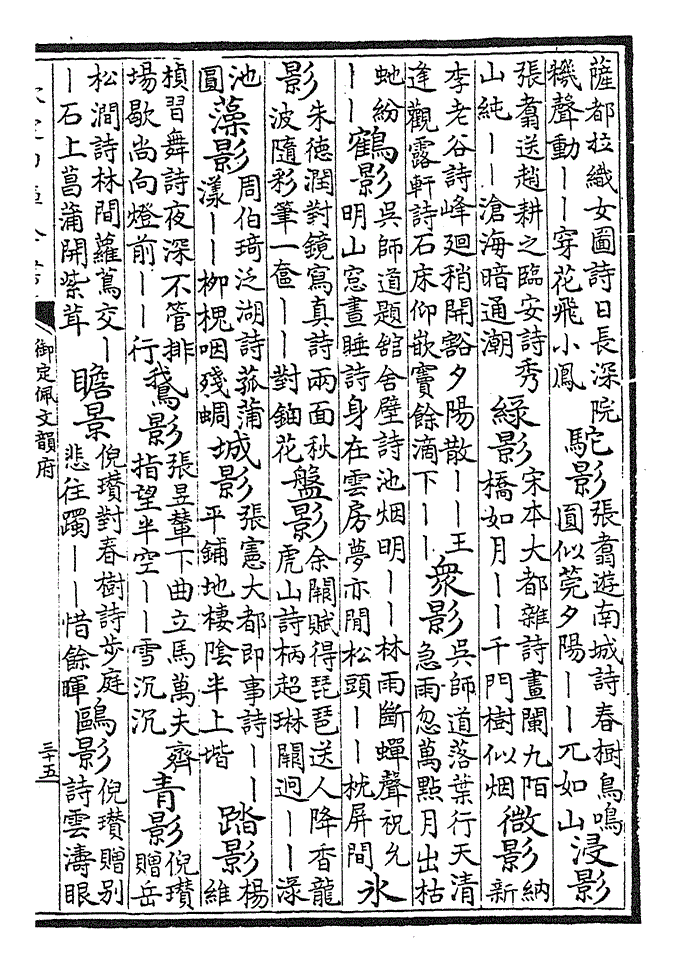 薩都拉織女圖詩日長深院機聲動――穿花飛小鳳 駝影 張翥遊南城詩春樹鳥鳴圓似莞夕陽――兀如山 浸影
張翥送趙耕之臨安詩秀山純――滄海暗通潮 綠影 宋本大都雜詩畫闌九陌橋如月――千門樹似烟 微影 納新
李老谷詩峰迴稍開豁夕陽散――王逢觀露軒詩石床仰嵌竇餘滴下―― 衆影 吳師道落葉行天清急雨忽萬點月出枯
虵紛―― 鶴影 吳師道題舘舍壁詩池烟明――林雨斷蟬聲祝允明山窓晝睡詩身在雲房夢亦閒松頭――枕屏間 氷
影 朱德潤對鏡寫真詩兩面秋波隨彩筆一奩――對鈿花 盤影 余闕賦得琵琶送人降香龍虎山詩柄超琳闕迥――渌
池圓 藻影 周伯琦泛湖詩菰蒲漾――柳槐咽殘蜩 城影 張憲大都即事詩――平鋪地棲陰半上堦 踏影 楊維
楨習舞詩夜深不管排場歇尚向燈前――行 鵞影 張昱輦下曲立馬萬夫齊指望半空――雪沉沉 青影 倪瓚贈岳
松澗詩林間蘿蔦交――石上菖蒲開紫茸 瞻景 倪瓚對春樹詩步庭悲往躅――惜餘暉 鷗影 倪瓚贈別詩雲濤眼
御定佩文韻府
三十五